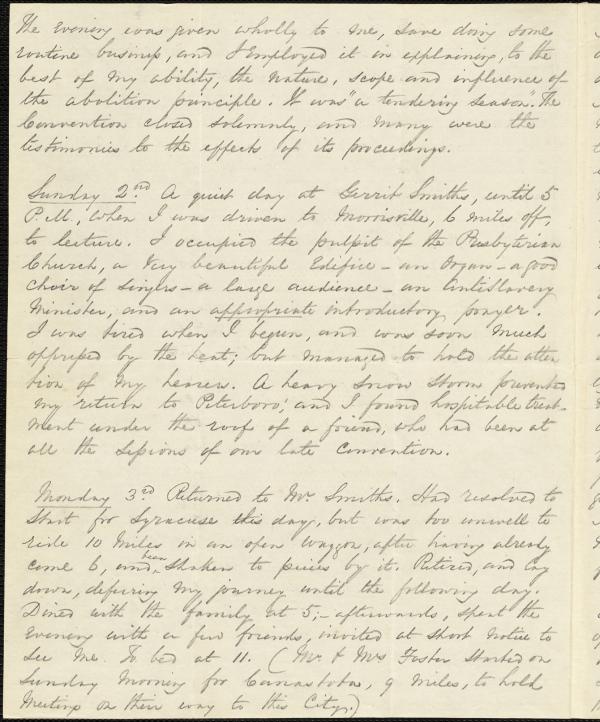 The Evening was given wholly to me, save doing some
routine business, and I employed it in explaining, to the
best of my ability, the nature, scope and influence of
the abolition principle. It was "a tendering season". The
Convention closed solemnly, and many were the
testimonies to the effects of its proceedings.
Sunday 2nd. A quiet day at Gerrit Smiths, until 5
P.M., when I was driven to Morrisville, 6 miles off,
to lecture. I occupied the pulpit of the Presbyterian
Church, a very beautiful Edifice - an Organ - a good
choir of singers - a large audience - an Antislavery
Minister, and an appropriate introductory prayer.
I was tired when I began, and was soon much
oppressed by the heat; but managed to hold the atten
tion of my hearers. A heavy snow storm prevented
my return to Peterboro', and I found hospitable treat-
ment under the roof of a friend, who had been at
all the Sessions of our late Convention.
Monday 3rd. Returned to Mr Smiths. Had resolved to
start for Syracuse this day, but was too unwell to
ride 10 miles in an open waggon, after having already
come 6, and been shaken to pieces by it. Retired, and lay
down, defering my journey until the following day.
Dined with the family at 5; - afterwards, spent the
Evening with a few friends, invited at short notice to
see me. To bed at 11. (Mr & Mrs Foster started on
Sunday Morning for Canastota, 9 miles, to hold
Meetings on their way to this City.)